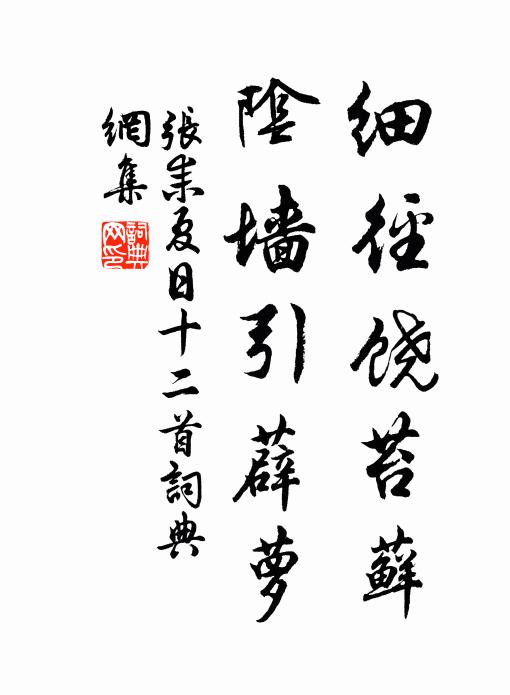 细径饶苔藓
陰墙引薜萝
張耒夏日十二首詞典
網集
詞典网印